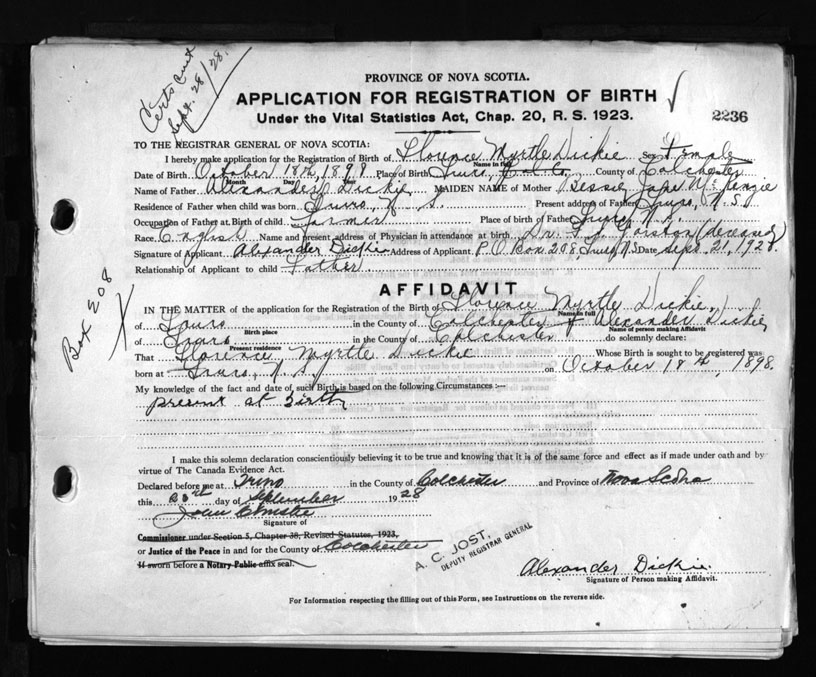 Certs Sent
Sept. 28/28.
PROVINCE OF NOVA SCOTIA.
APPLICATION FOR REGISTRATION OF BIRTH
Under the Vital Statistics Act, Chap. 20, R. S. 1923.
2236
TO THE REGISTRAR GENERAL OF NOVA SCOTIA:
I hereby make application for the Registration of Birth of Florence Myrtle Dickie Sex Female
Name in full
Date of Birth October 18th, 1898 Place of Birth Truro, Col. Co. County of Colchester
Month Day Year
Name of Father Alexander Dickie MAIDEN NAME of Mother Jessie Jane McKenzie
Residence of Father when child was born Truro, N. S. Present address of Father Truro, N. S.
Occupation of Father at Birth of child Farmer Place of birth of Father Truro, N. S.
Race English Name and present address of Physician in attendance at birth Dr. (deceased)
Signature of Applicant Alexander Dickie Address of Applicant P. O. Box 208, Truro, N.S. Date Sept. 21, 1928.
Relationship of Applicant to child Father.
AFFIDAVIT
Box 208
IN THE MATTER of the application for the Registration of the Birth of Florence Myrtle Dickie,
Name in full
of Truro in the County of Colchester I Alexander Dickie
Birth place Name of person making Affidavit
of Truro in the County of Colchester do solemnly declare:
Present residence
That Florence Myrtle Dickie Whose Birth is sought to be registered was
born at Truro, N. S. on October 18th, 1898.
My knowledge of the fact and date of such Birth is based on the following Circumstances :—
present at birth
I make this solemn declaration conscientiously believing it to be true and knowing that it is of the same force and effect as if made under oath and by
virtue of The Canada Evidence Act.
Declared before me at Truro in the County of Colchester and Province of Nova Scotia
this 23rd day of September 1928
Signature of
Commissioner under Section 5, Chapter 38, Revised Statutes, 1923,
or Justice of the Peace in and for the County of Colchester
If sworn before a Notary Public affix seal.
A. C. JOST,
DEPUTY REGISTRAR GENERAL
Alexander Dickie
Signature of Person making Affidavit.
For Information respecting the filling out of this Form, see Instructions on the reverse side.